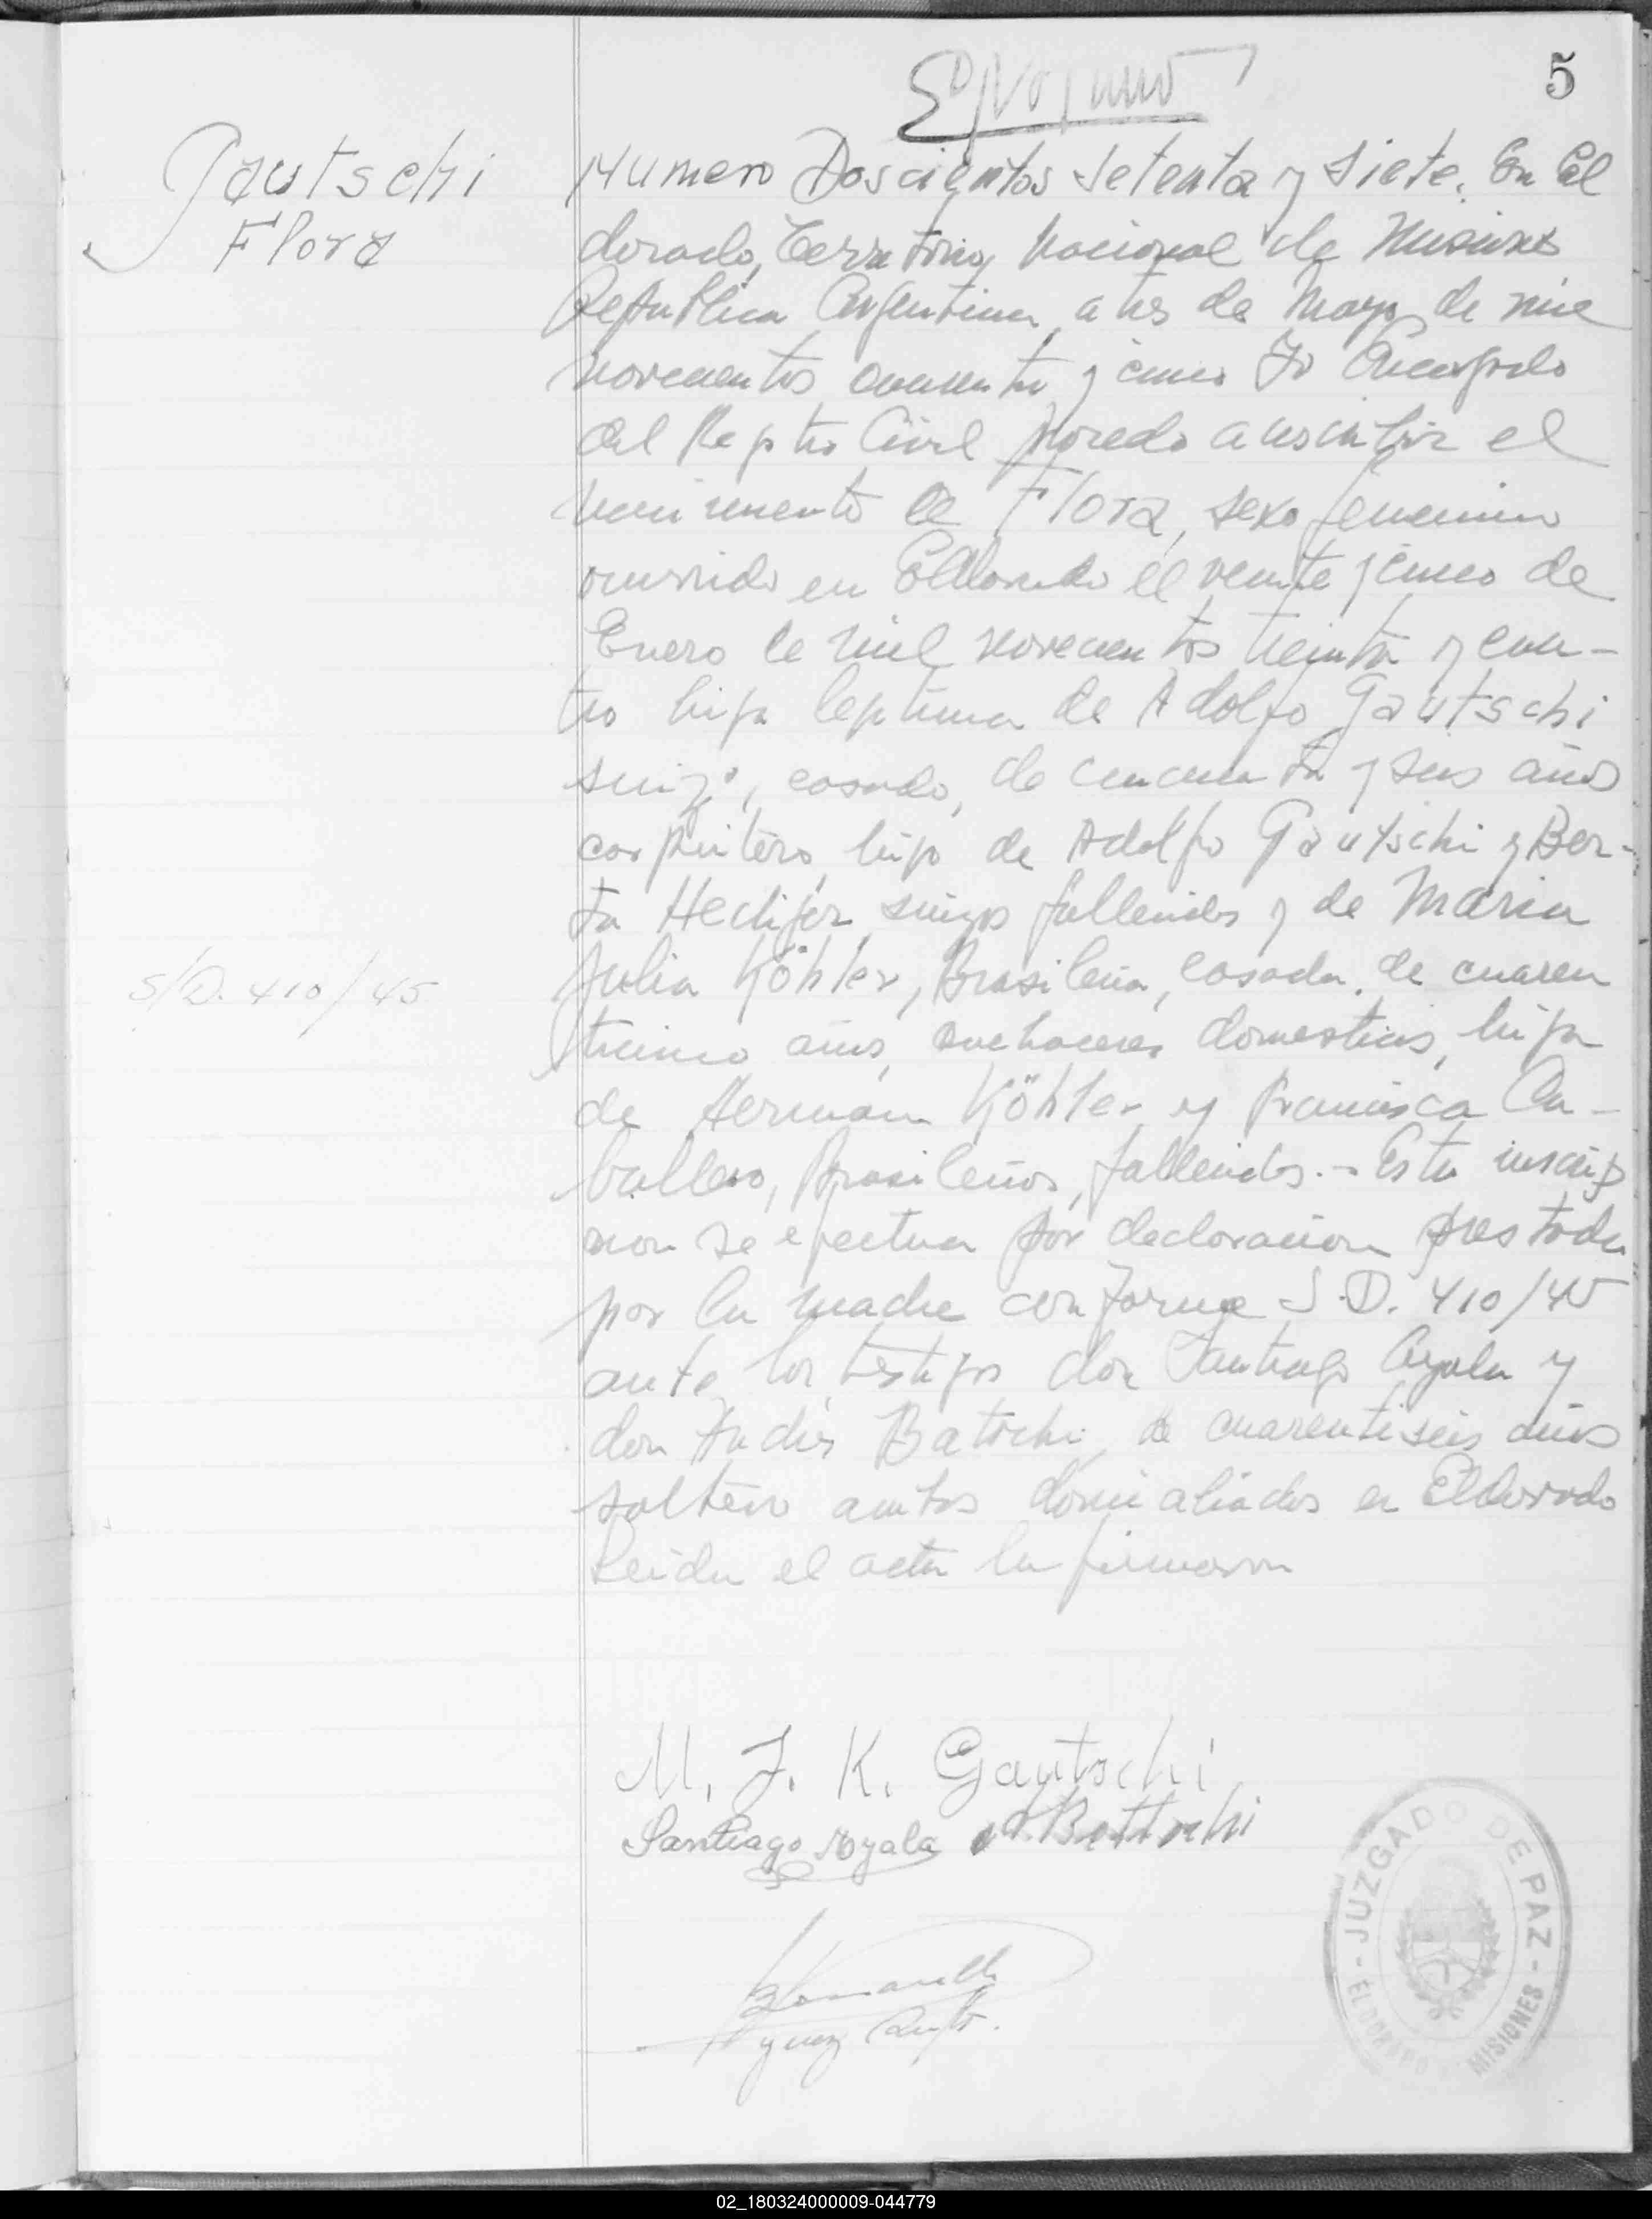 5
Gautschi
Flora
Numero Doscientos setenta y siete. En El
dorado, Territorio Nacional de Misiones
Republica Argentina, a tres de Mayo de mil
novecientos cuarenta y cinco Yo Encargado
del Registro Civil procedo a inscribir el
nacimiento de Flora, sexo femenino
ocurrido en Eldorado el veinte y cinco de
Enero de mil novecientos treinta y cua-
tro hija legitima de Adolfo Gautschi
suizo, casado, de cincuenta y seis años
carpintero, hijo de Adolfo Gautschi y Ber-
ta suizos fallecidos y de Maria
Julia Köhler, Brasileña, casada, de cuaren
ticinco años, quehaceres domesticos, hija
de Herman Köhler y Francisca Ca-
ballero, Brasileños, fallecidos.- Esta inscrip
cion se efectua por declaracion prestada
por la madre conforme S.D. 410/45
ante los testigos don Santiago Ayala y
don Andrés de cuarentiseis años
soltero ambos domiciliados en Eldorado
Leida el acta la firmaron
S/D. 410/45
M. J. K. Gautschi
Santiago Ayala
JUZGADO DE PAZ
ELDORADO MISIONES
02_180324000009-044779